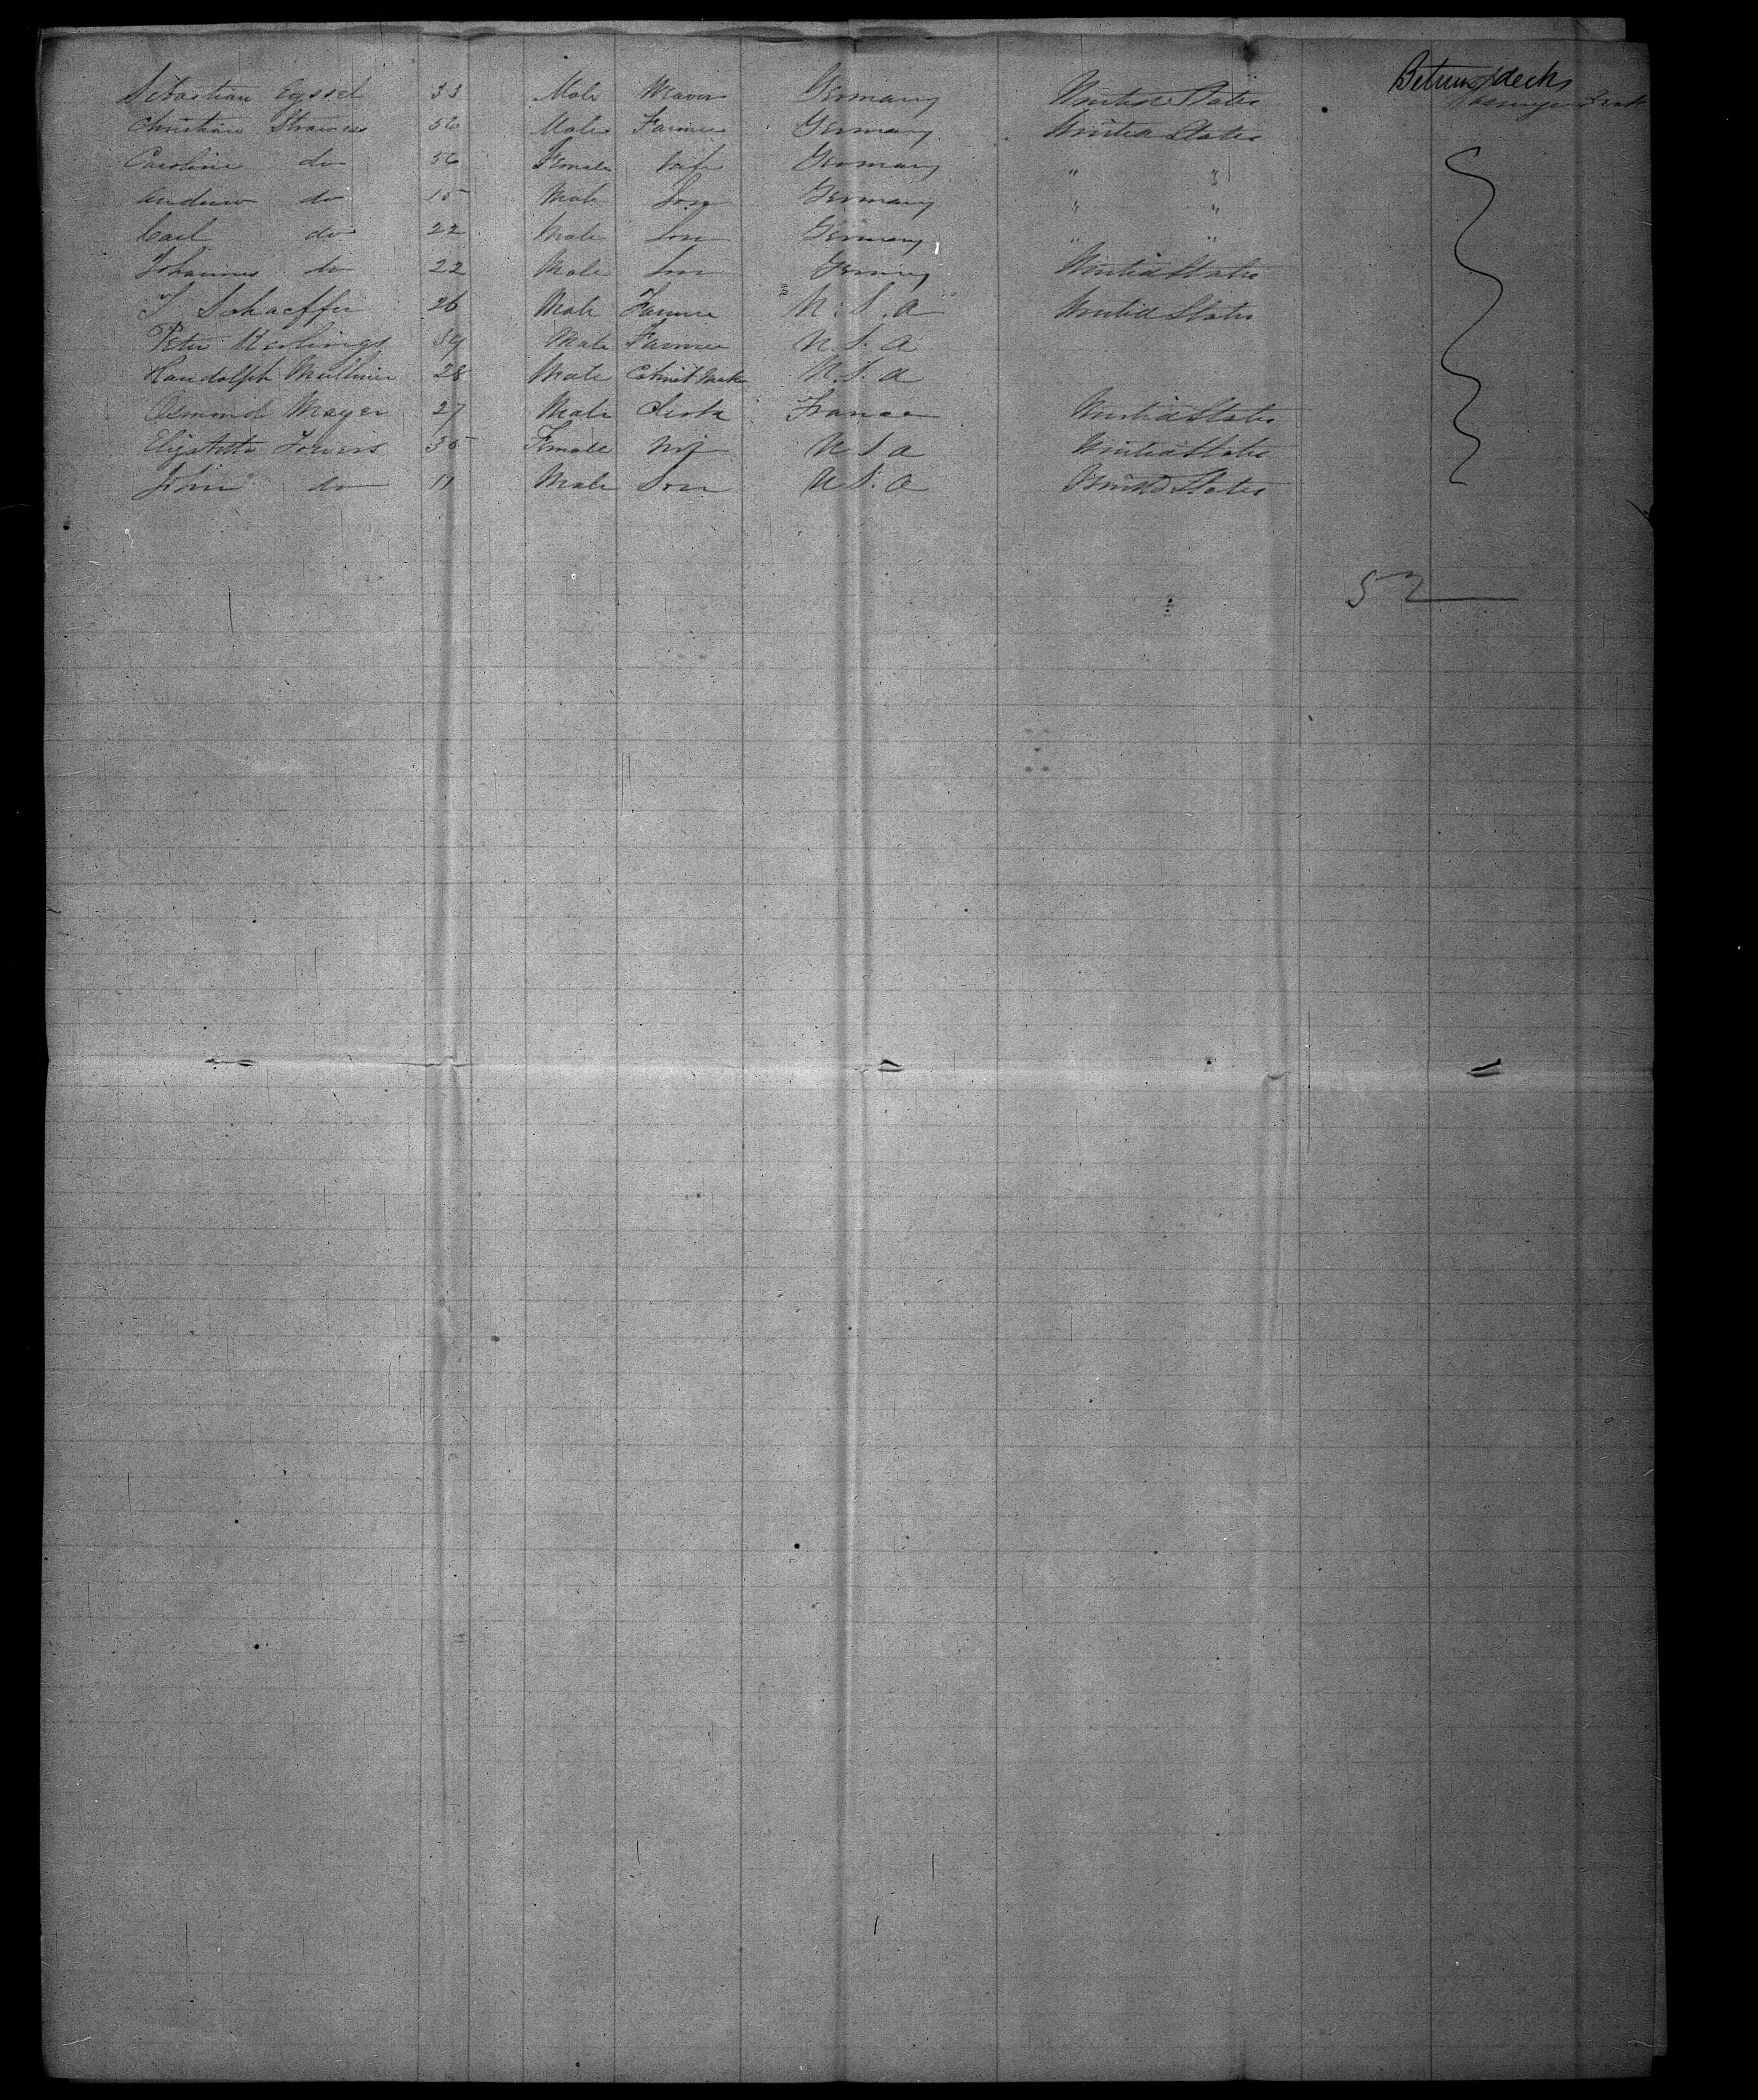 Sebastian Eyssel 33 Male Weaver Germany United States Between decks
Christian Strauss 56 Male Farmer Germany United States
Caroline do 56 Female wife Germany " "
Andrew do 15 Male Son Germany " "
Carl do 22 Male Son Germany " "
Johannes do 22 Male Son Germany United States
J Schaeffer 26 Male Farmer U.S.A United States
Peter 39 Male Farmer U.S.A
Randolph 28 Male Cabinet Maker U.S.A
Osmond Mayer 27 Male Clerk France United States
Elizabeth 35 Female Wife U S A United States
John do 11 Male Son U.S.A United States
52